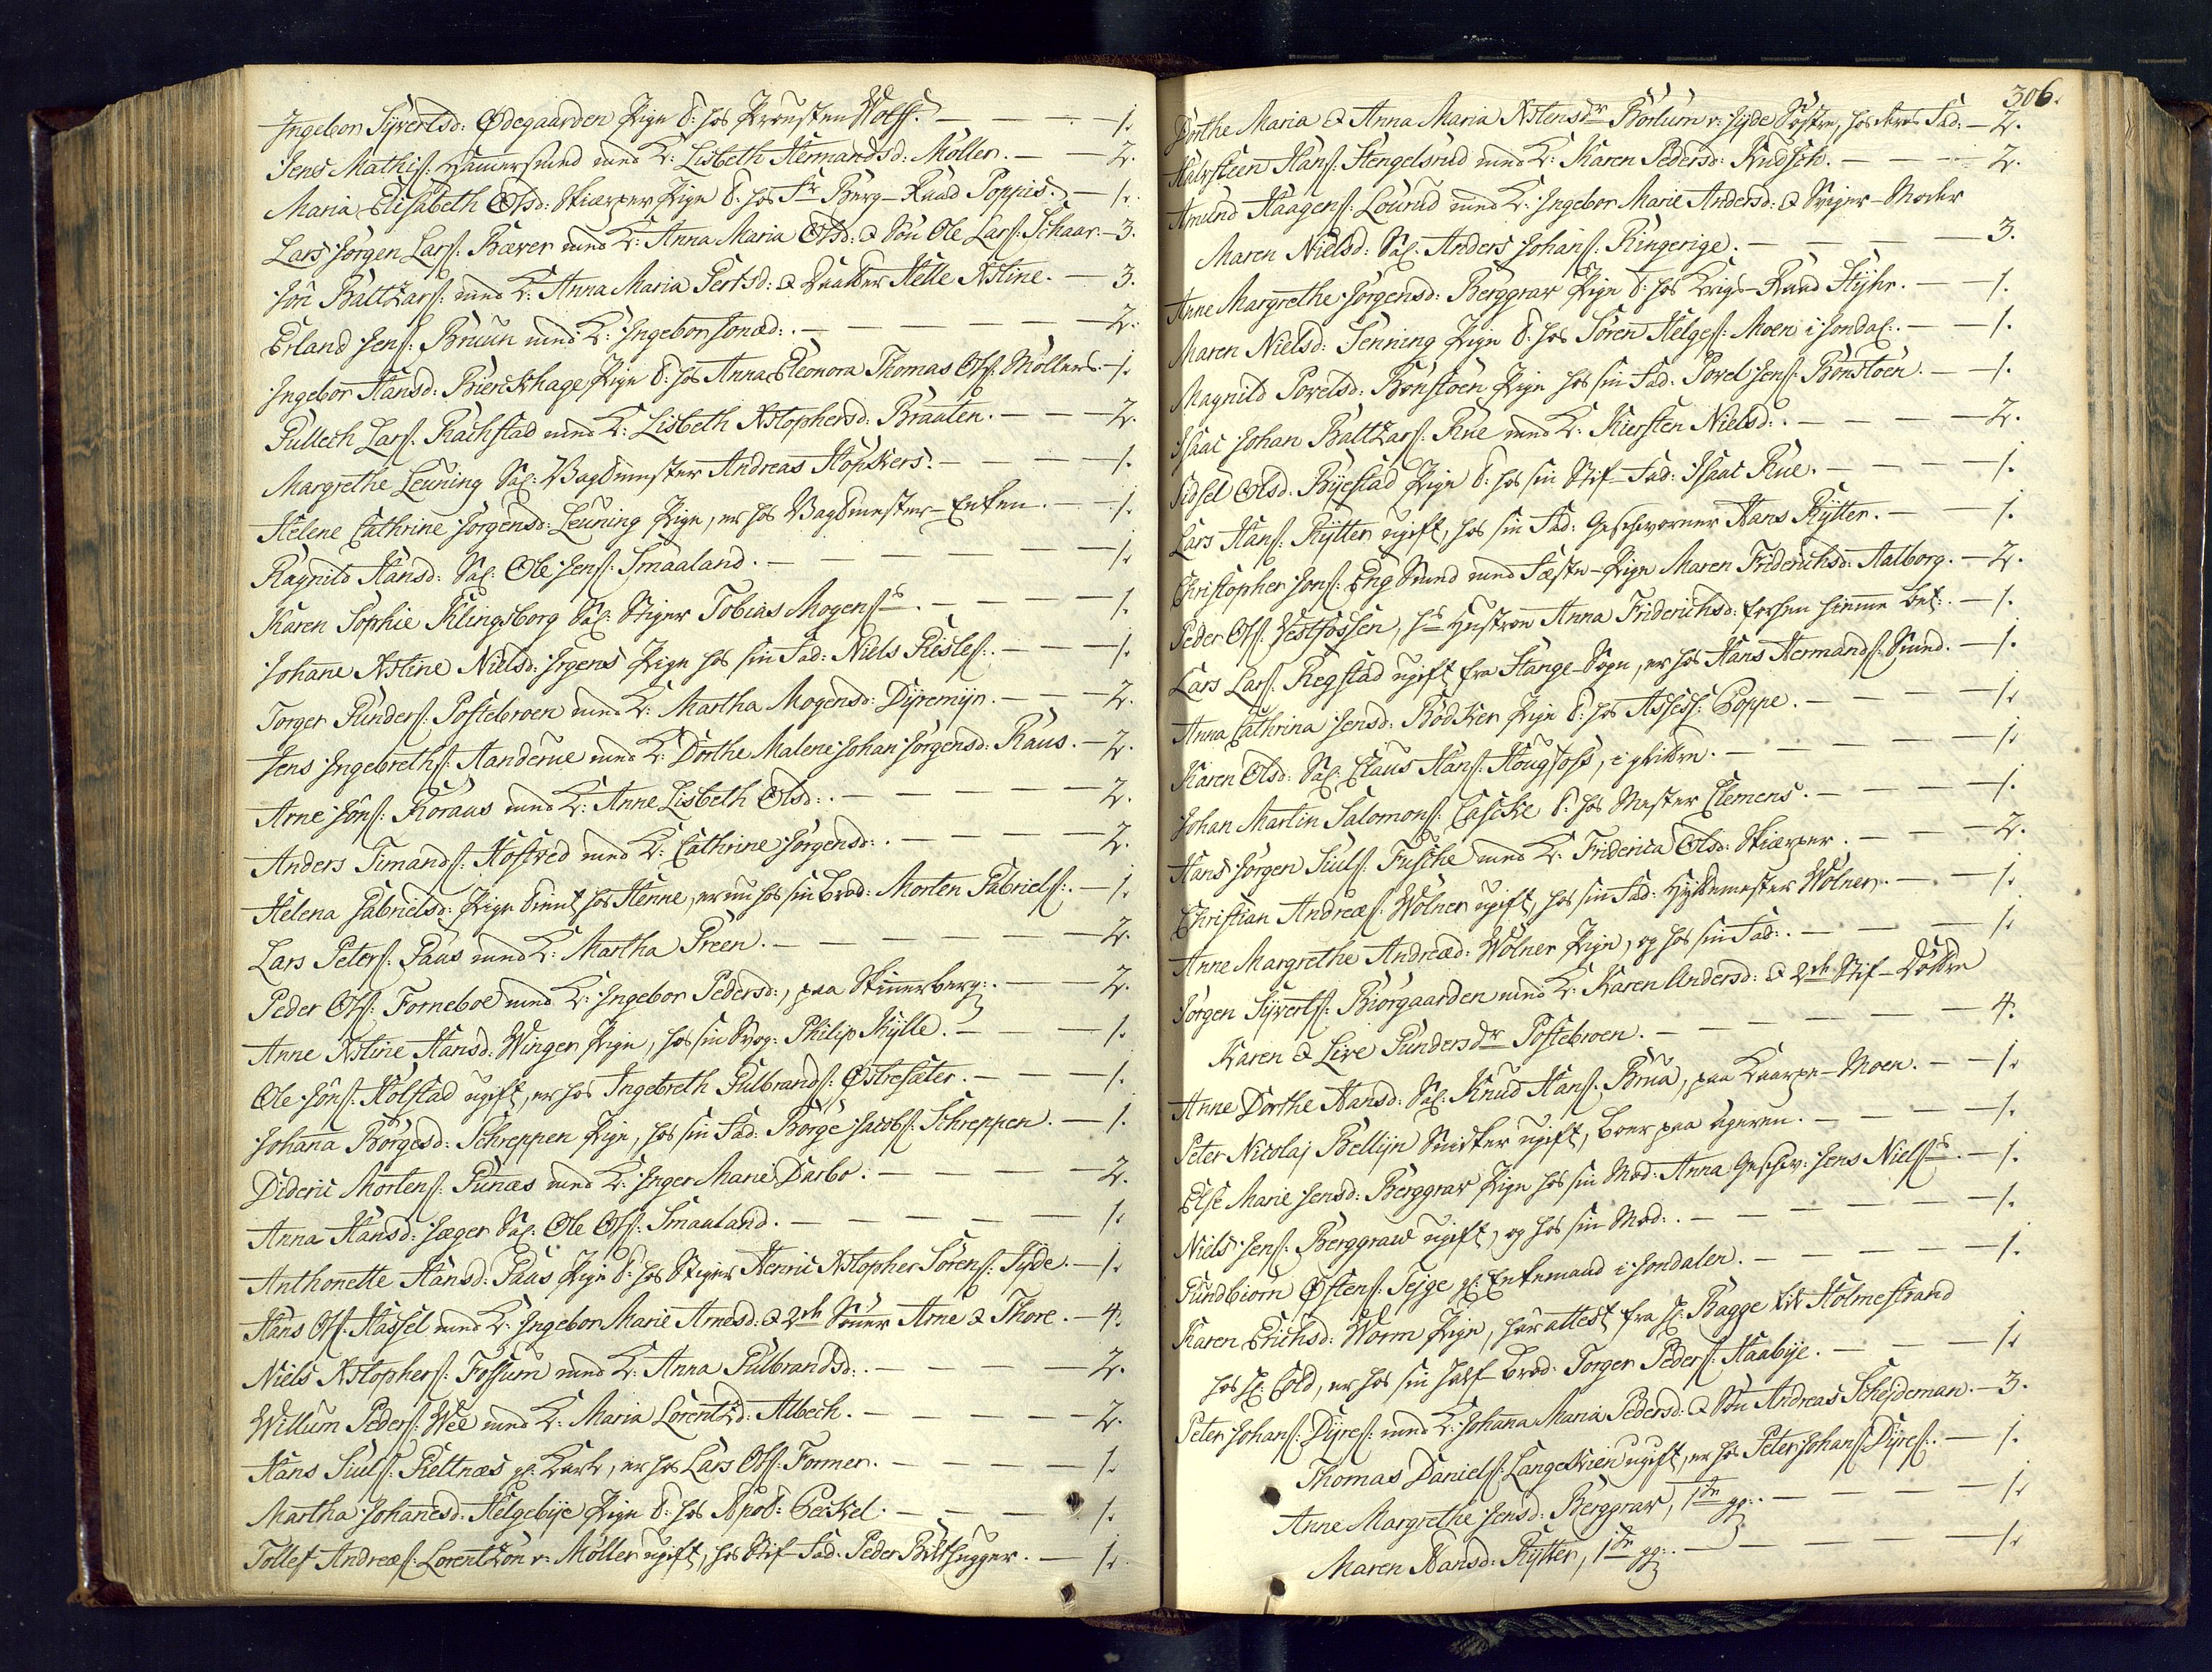 Ingebor Syvertsd: Ødegaarden Pige t: hos Provsten Wolff. — 1.
Jens Mathis: Hamersmed med K: Lisbeth Hermandsd: Møller. — 2.
Maria Elisabeth Olsd: Skiærper Pige t: hos Hr Berg-Raad Poppis. — 1.
Lars Jørgen Lars: Bæver med K: Anna Maria Olsd: & Søn Ole Lars: Schaar. — 3.
Jon Baltzars: med K: Anna Maria Pertsd: & Daatter Helle Xstine. — 3.
Erland Jens: Bruun med K: Ingebor Jonæd: — 2.
Ingebor Hansd: Bierkhage Pige t: hos Anna Eleonora Thomas Ols: Møllers. — 1.
Gullech Lars: Rachstad med K: Lisbeth Xstophersd: Braaten. — 2.
Margrethe Leuning Sal: Vagtmester Andreas Høpkers. — 1.
Helene Cathrine Jørgensd: Leuning Pige, er hos Vagtmester-Enken. — 1.
Ragnild Hansd: Sal: Ole Jens: Smaaland. — 1.
Karen Sophie Klingsborg Sal: Stiger Tobias Mogens:s. — 1.
Johane Xstine Nielsd: Irgens Pige hos sin Fad: Niels Gisles: — 1.
Torger Gunders: Postebroen med K: Martha Mogensd: Dyremyr. — 2.
Jens Ingebreths: Aanderue med K: Dorthe Malene Johan Jørgensd: Raus. — 2.
Arne Jons: Roraus med K: Anne Lisbeth Olsd: — 2.
Anders Timands: Hostved med K: Cathrine Jørgensd: — 2.
Helena Gabrielsd: Pige tient hos Henne, er nu hos sin Brod: Morten Gabriels: — 1.
Lars Peters: Paus med K: Martha Preen. — 2.
Peder Ols: Forneboe med K: Ingebor Pedersd:, paa Skinnerberg: — 2.
Anne Xstine Hansd: Winger Pige, hos sin Svog: Philip Hylle. — 1.
Ole Jons: Holstad ugift, er hos Ingebreth Gulbrands: Østresæter. — 1.
Johana Børgesd: Schreppen Pige, hos sin Fad: Børge Jacobs: Schreppen. — 1.
Dideric Mortens: Punæs med K: Inger Marie Darbo: — 2.
Anna Hansd: Jæger Sal: Ole Ols: Smaaland. — 1.
Anthonette Hansd: Paus Pige t: hos Stiger Henric Xstopher Sørens: Jyde. — 1.
Hans Ols: Hassel med K: Ingebor Marie Arnesd: & 2de Sønner Arne & Thore. — 4.
Niels Xstophers: Fossum med K: Anna Gulbrandsd: — 2.
Willum Peders: Wee med K: Maria Lorentzd: Albech. — 2.
Hans Siuls: Gieltnæs gl: Karl, er hos Lars Ols: Former. — 1.
Martha Johanesd: Helgebye Pige t: hos Apot: Peckel. — 1.
Tollef Andreæs: Lorentzon v: Møller ugift, hos Stif-Fad: Peder Bilthugger. — 1.
306.
Dorthe Maria & Anna Maria Xstensdr Børlum v: Jyde Søstre, hos deres Fad: — 2.
Halvsteen Hans: Stengelsrud med K: Karen Pedersd: Kudsch. — 2.
Amund Haagens: Lourud med K: Ingebor Marie Andersd: & Sviger-Moder
Maren Nielsd: Sal: Anders Johans: Ringerige. — 3.
Anne Margrethe Jørgensd: Berggrav Pige t: hos Krigs-Raad Hyhr. — 1.
Maren Nielsd: Senning Pige t: hos Søren Helges: Moen i Jondal: — 1.
Magnild Povelsd: Bonstoen Pige hos sin Fad: Povel Jens: Bonstoen. — 1.
Isaac Johan Baltzars: Rue med K: Kiersten Nielsd: — 2.
Sidsel Olsd: Byestad Pige t: hos sin Stif-Fad: Isaac Rue. — 1.
Lars Hans: Rytter ugift, hos sin Fad: Geschworner Hans Rytter. — 1.
Christopher Jons: Eng Smed med Fæste-Pige Maren Friderichsd: Aalborg. — 2.
Peder Ols: Vestfossen, hs Hustroe Anna Friderichsd: forhen hiemme bet: — 1.
Lars Lars: Regstad ugift fra Stange-Sogn, er hos Hans Hermands: Smed. — 1.
Anna Cathrina Jensd: Bødker Pige t: hos Assess: Poppe. — 1.
Karen Olsd: Sal: Claus Hans: Hougfoss, i gl: — 1.
Johan Martin Salomons: Cascke t: hos Mester Clemens. — 1.
Hans Jørgen Siuls: Fusche med K: Friderica Olsd: Skiærper. — 2.
Christian Andreæs: Wølner ugift, hos sin Fad: Hyttemester Wølner. — 1.
Anne Margrethe Andreæd: Wølner Pige, og hos sin Fad: — 1.
Jørgen Syverts: Biørgaarden med K: Karen Andersd: & 2de Stif-Døttre
Karen & Live Gundersdr Postebroen. — 4.
Anne Dorthe Hansd: Sal: Knud Hans: Brua, paa Kaarpe-Moen. — 1.
Peter Nicolaj Bellijn Snidker ugift, boer paa Ageren. — 1.
Else Marie Jensd: Berggrav Pige hos sin Mod: Anna Geschw: Jens Niels:s. — 1.
Niels Jens: Berggrav ugift, og hos sin Mod: — 1.
Gundbiorn Østens: Tejge gl: Enkemand i Jondalen. — 1.
Karen Erichsd: Worm Pige, har attest fra H: Bagge til Holmestrand
hos H: Cold, er hos sin half-Brod: Torger Peders: Haabye. — 1.
Peter Johans: Dyres: med K: Johana Maria Pedersd: & Søn Andreas Schejdeman. — 3.
Thomas Daniels: Langeskien ugift, er hos Peter Johans: Dyres: — 1.
Anne Margrethe Jensd: Berggrav, 1ste gg: — 1.
Maren Hansd: Rytter, 1ste gg: — 1.